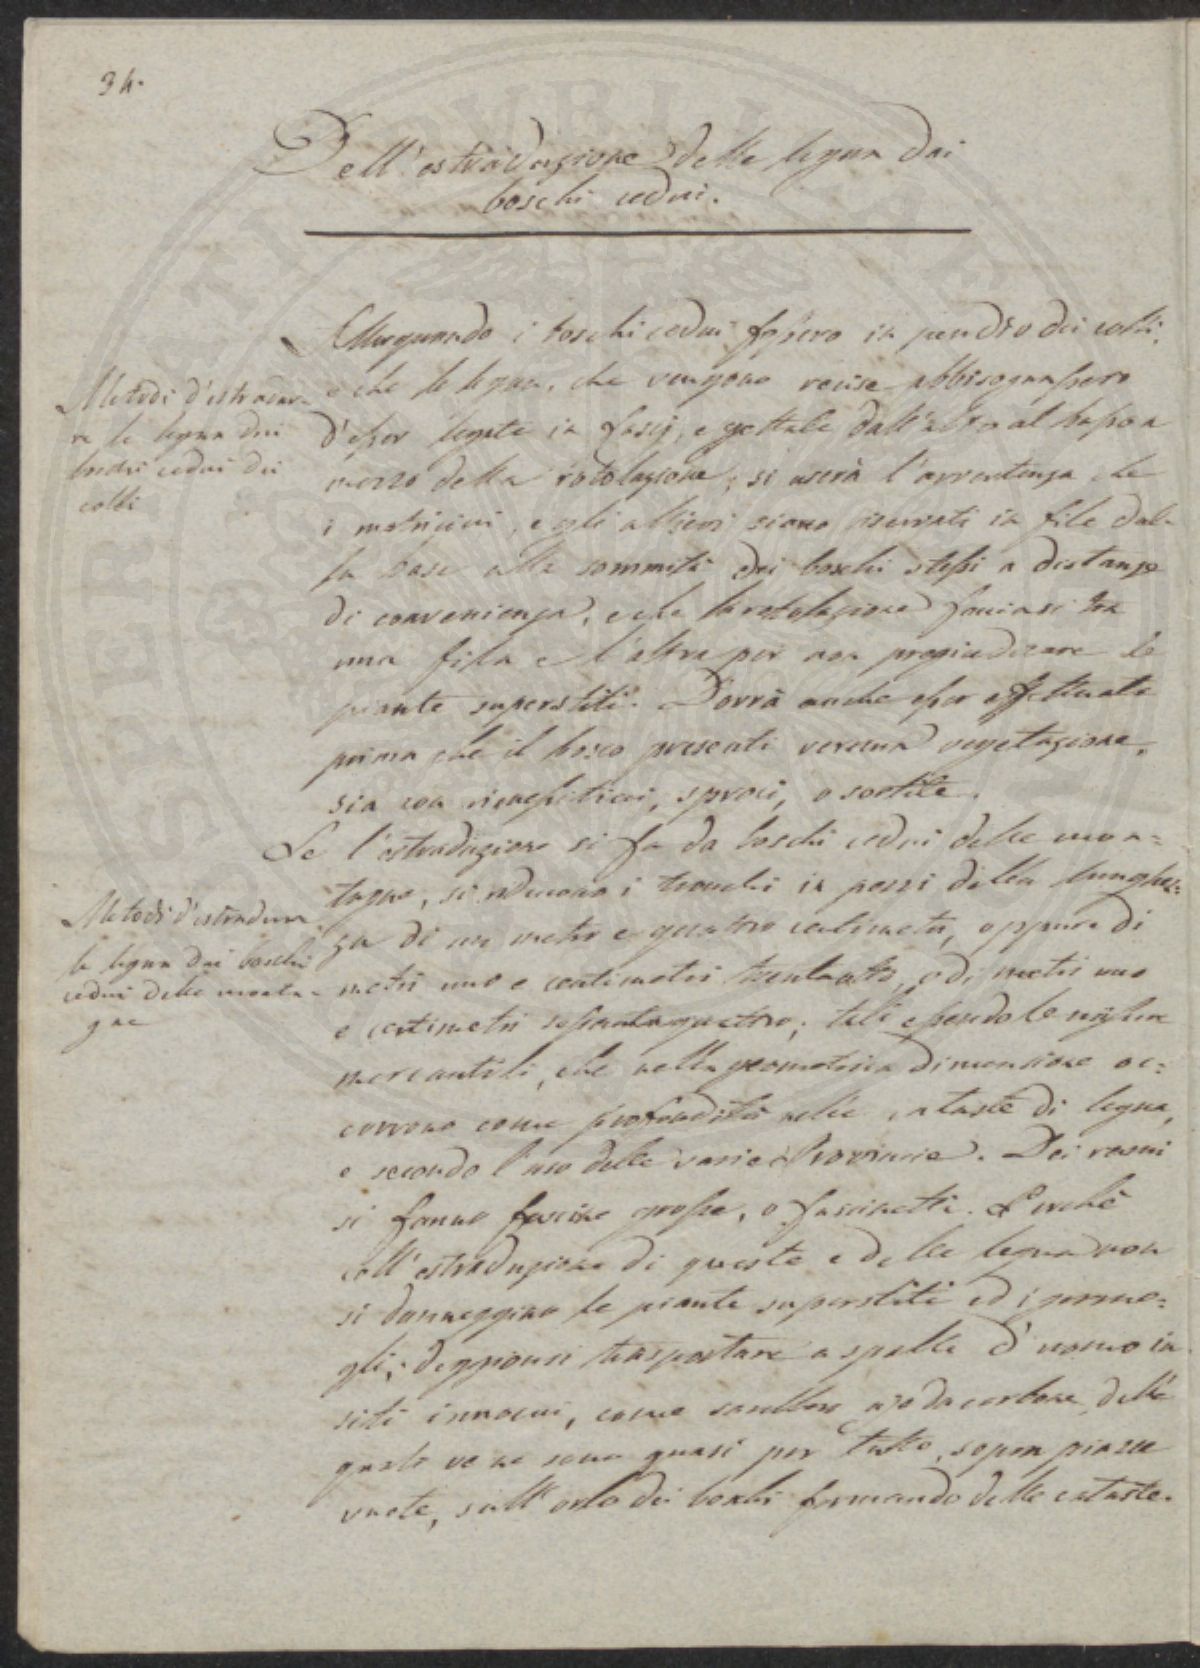 34.
Dell'estraduzione delle legna dai
boschi cedui.
Allorquando i boschi cedui fossero in pendio dei colli,
Metodi d'estradur-
re le legna dai
boschi cedui dei
colli
e che le legna, che vengono recise abbisognassero
d'esser legate in fascj, e gettate dall'alto al basso a
mezzo della rotolazione; si userà l'avvertenza che
i matricini, e gli allievi siano riservati in file dal-
la base alla sommità dei boschi stessi a distanze
di convenienza, e che la rotolazione facciasi tra
una fila e l'altra per non pregiudicare le
piante superstiti. Dovrà anche esser effettuata
prima che il bosco presenti veruna vegetazione,
sia con rimessiticci, sproci, o sortite.
Se l'estraduzione si fa da boschi cedui delle mon=
tagne, si riducono i tronchi in pezzi della lunghez=
Metodi d'estradurre
le legna dai boschi
cedui delle monta-
gne
za di un metro e quattro centimetri, oppure di
metri uno e centimetri trentaotto, o di metri uno
e centimetri sessantaquattro; tali essendo le migliori
mercantili, che nella geometrica dimensione oc=
corrono come profondità nelle cataste di legna,
e secondo l'uso delle varie Provincie. Dei rami
si fanno fascine grosse, o fascinetti. Perchè
coll'estraduzione di queste e delle legna non
si danneggino le piante superstiti ed i germo=
gli; deggionsi trasportare a spalle d'uomo in
siti innocui, come sarebbero aje da carbone, delle
quali ve ne sono quasi per tutto, sopra piazze
vuote, sull'orlo dei boschi formando delle cataste.